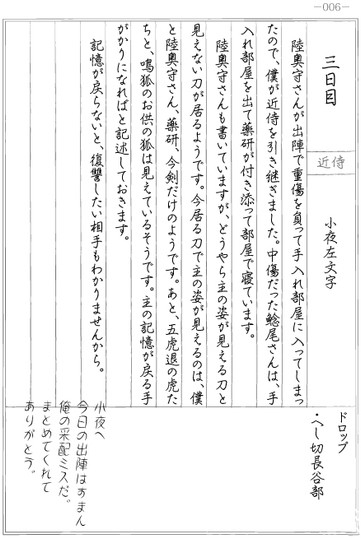 －006－
三日目
近侍
小夜左文字
陸奥守さんが出陣で重傷を負って手入れ部屋に入ってしまっ
たので、僕が近侍を引き継ぎました。中傷だった鯰尾さんは、手
入れ部屋を出て薬研が付き添って部屋で寝ています。
陸奥守さんも書いていますが、どうやら主の姿が見える刀と
見えない刀が居るようです。今居る刀で主の姿が見えるのは、僕
と陸奥守さん、薬研、今剣だけのようです。あと、五虎退の虎た
ちと、鳴狐のお供の狐は見えているそうです。主の記憶が戻る手
がかりになればと記述しておきます。
記憶が戻らないと、復讐したい相手もわかりませんから。
ドロップ
・へし切長谷部
小夜へ
今日の出陣はすまん
俺の采配ミスだ。
まとめてくれて
ありがとう。